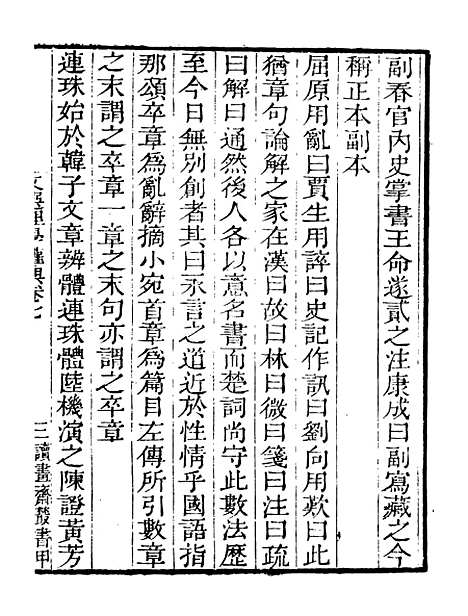 副春官內史掌書王命遂貳之注康成曰副寫藏之今
稱正本副本
屈原用亂曰賈生用誶曰史記作訊曰劉向用歎曰此
猶章句論解之家在漢曰故曰林曰微曰箋曰注曰疏
曰解曰通然後人各以意名書而楚詞尚守此數法歷
至今日無別創者其曰永言之道近於性情乎國語指
那頌卒章為亂辭摘小宛首章為篇目左傳所引數章
之末謂之卒章一章之末句亦謂之卒章
連珠始於韓子文章辨體連珠體陸機演之陳證黃芳
卷七
三
讀畫齋叢書甲